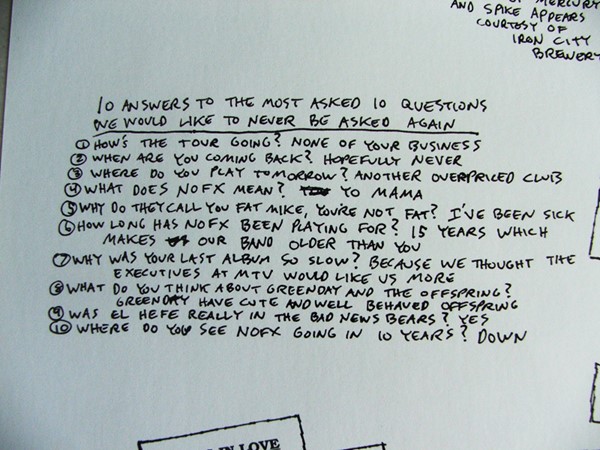 MERCURY
AND SPIKE APPEARS
COURTESY OF
IRON CITY
BREWERY
10 ANSWERS TO THE MOST ASKED 10 QUESTIONS
WE WOULD LIKE TO NEVER BE ASKED AGAIN
① HOW'S THE TOUR GOING? NONE OF YOUR BUSINESS
② WHEN ARE YOU COMING BACK? HOPEFULLY NEVER
③ WHERE DO YOU PLAY TOMORROW? ANOTHER OVERPRICED CLUB
④ WHAT DOES NOFX MEAN? YO MAMA
⑤ WHY DO THEY CALL YOU FAT MIKE, YOU'RE NOT FAT? I'VE BEEN SICK
⑥ HOW LONG HAS NOFX BEEN PLAYING FOR? 15 YEARS WHICH
MAKES OUR BAND OLDER THAN YOU
⑦ WHY WAS YOUR LAST ALBUM SO SLOW? BECAUSE WE THOUGHT THE
EXECUTIVES AT MTV WOULD LIKE US MORE
⑧ WHAT DO YOU THINK ABOUT GREENDAY AND THE OFFSPRING?
GREENDAY HAVE CUTE AND WELL BEHAVED OFFSPRING
⑨ WAS EL HEFE REALLY IN THE BAD NEWS BEARS? YES
⑩ WHERE DO YOU SEE NOFX GOING IN 10 YEARS? DOWN
IN LOVE